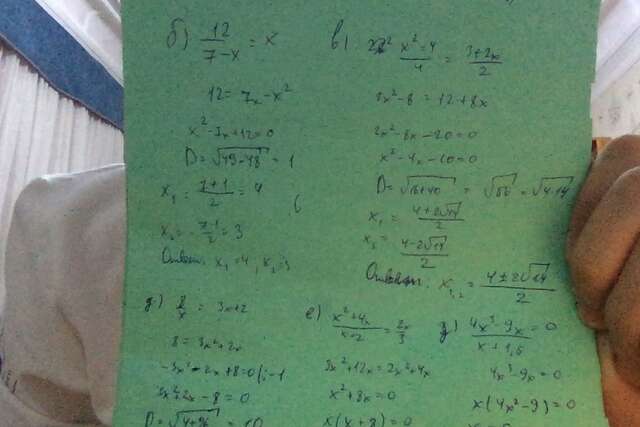 б) 12/(7-x) = x
12 = 7x - x²
x² - 7x + 12 = 0
D = √49-48 = 1
x₁ = (7+1)/2 = 4
x₂ = (7-1)/2 = 3
x₁ = 4,
в) (x²-4)/4 = (3+2x)/2
2x² - 8 = 12 + 8x
2x² - 8x - 20 = 0
x² - 4x - 10 = 0
D = √16+40 = √56 = √4·14
x₁ = (4+2√14)/2
x₂ = (4-2√14)/2
x₁,₂ = (4±2√14)/2
д) 8/x = 3x+2
8 = 3x² + 2x
-3x² - 2x + 8 = 0 |: -1
3x² + 2x - 8 = 0
D = √4+96 = 10
е) (x²+4x)/(x+2) = 2x/3
3x² + 12x = 2x² + 4x
x² + 8x = 0
x(x+8) = 0
(4x³-9x)/(x+1,5) = 0
4x³ - 9x = 0
x(4x²-9) = 0